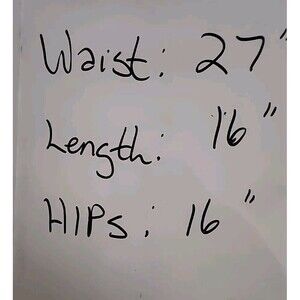 Waist: 27"
Length: 16"
HIPs: 16"